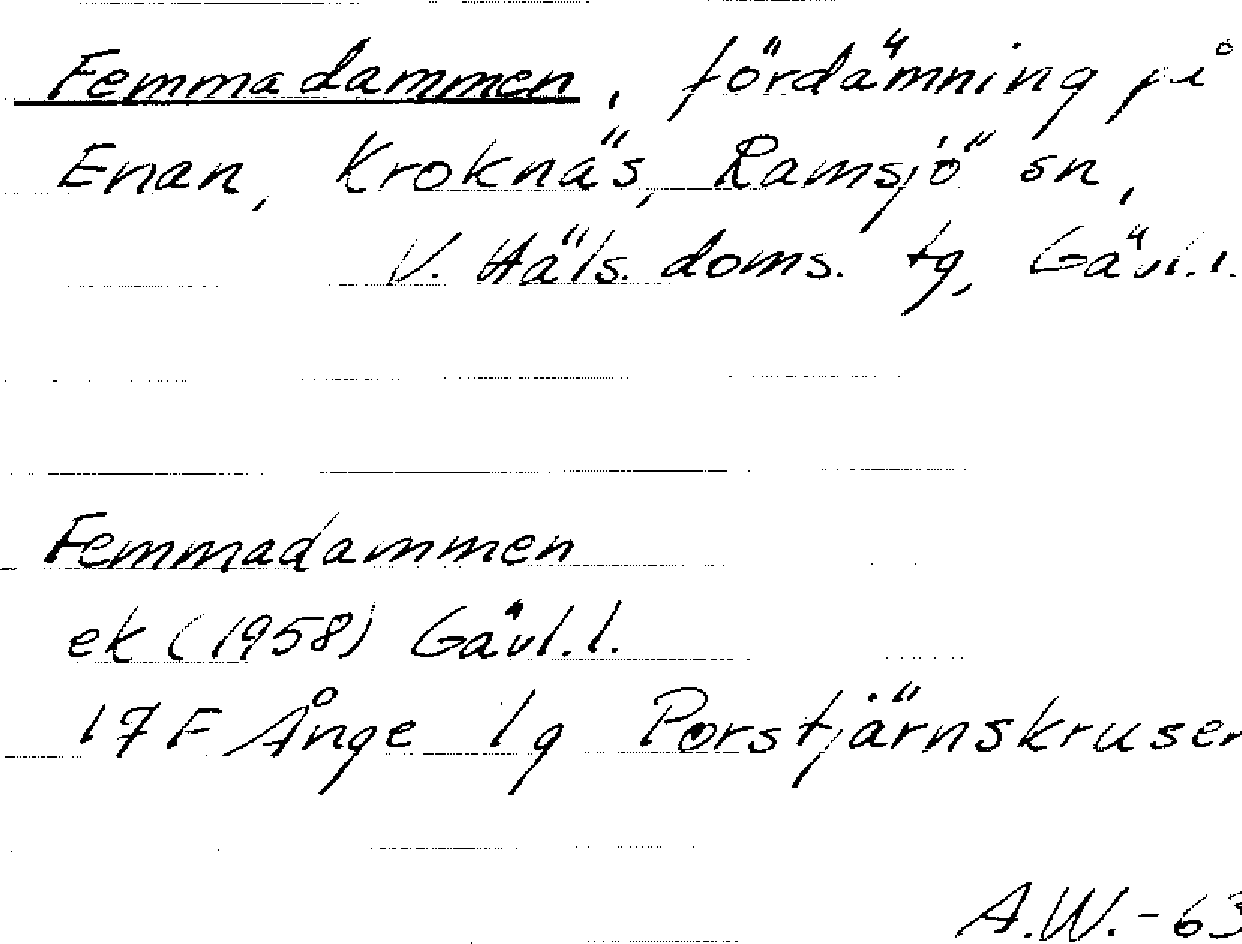 Femmadammen, fördämning på
Enan, Kroknäs, Ramsjö sn,
V. Häls. doms. tg, Gävl.l.
Femmadammen
ek (1958) Gävl.l.
17F Ånge 1g Porstjärnskrusen
A.W.-63